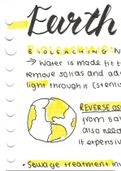 Earth
BIOLEACHING N
→ Water is made fit t
remove solids and ad
light through it (steril
REVERSE OS
from sa
also need
it expens
• Sewage treatment in